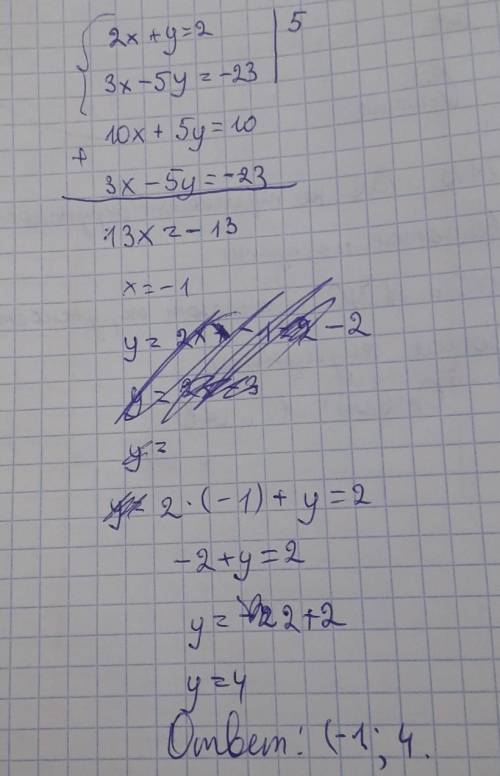 2x + y = 2 | 5
3x - 5y = -23
10x + 5y = 10
+
3x - 5y = -23
13x = -13
x = -1
y =
2 · (-1) + y = 2
-2 + y = 2
y = 2 + 2
y = 4
Ответ: (-1; 4.